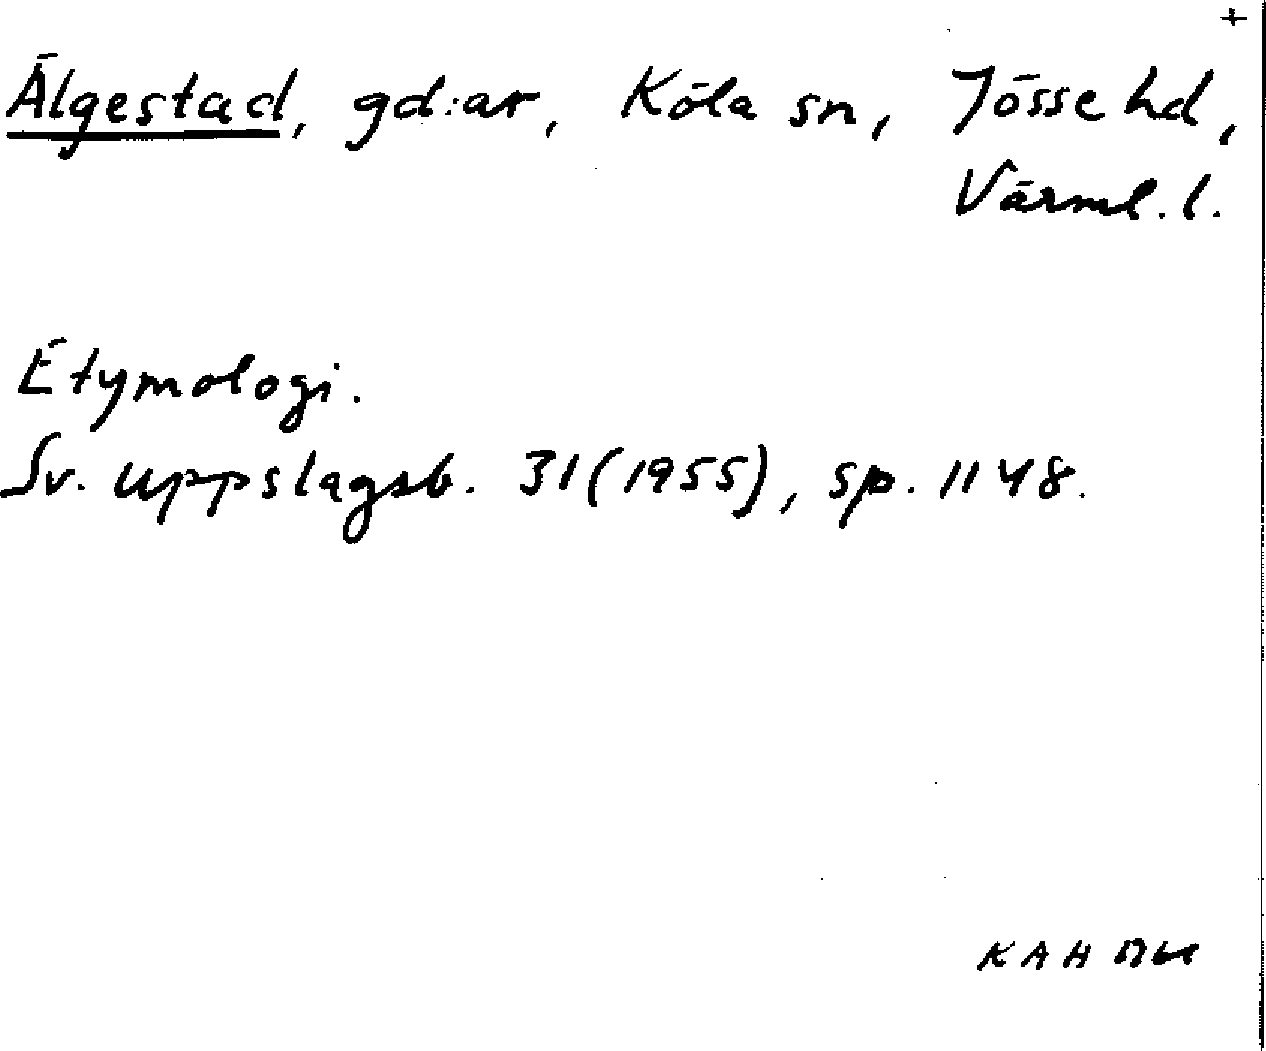 +
Älgestad, gd:ar, Köla sn, Jösse hd,
Värml. l.
Etymologi.
Sv. uppslagsb. 31 (1955), sp. 1148.
KAH